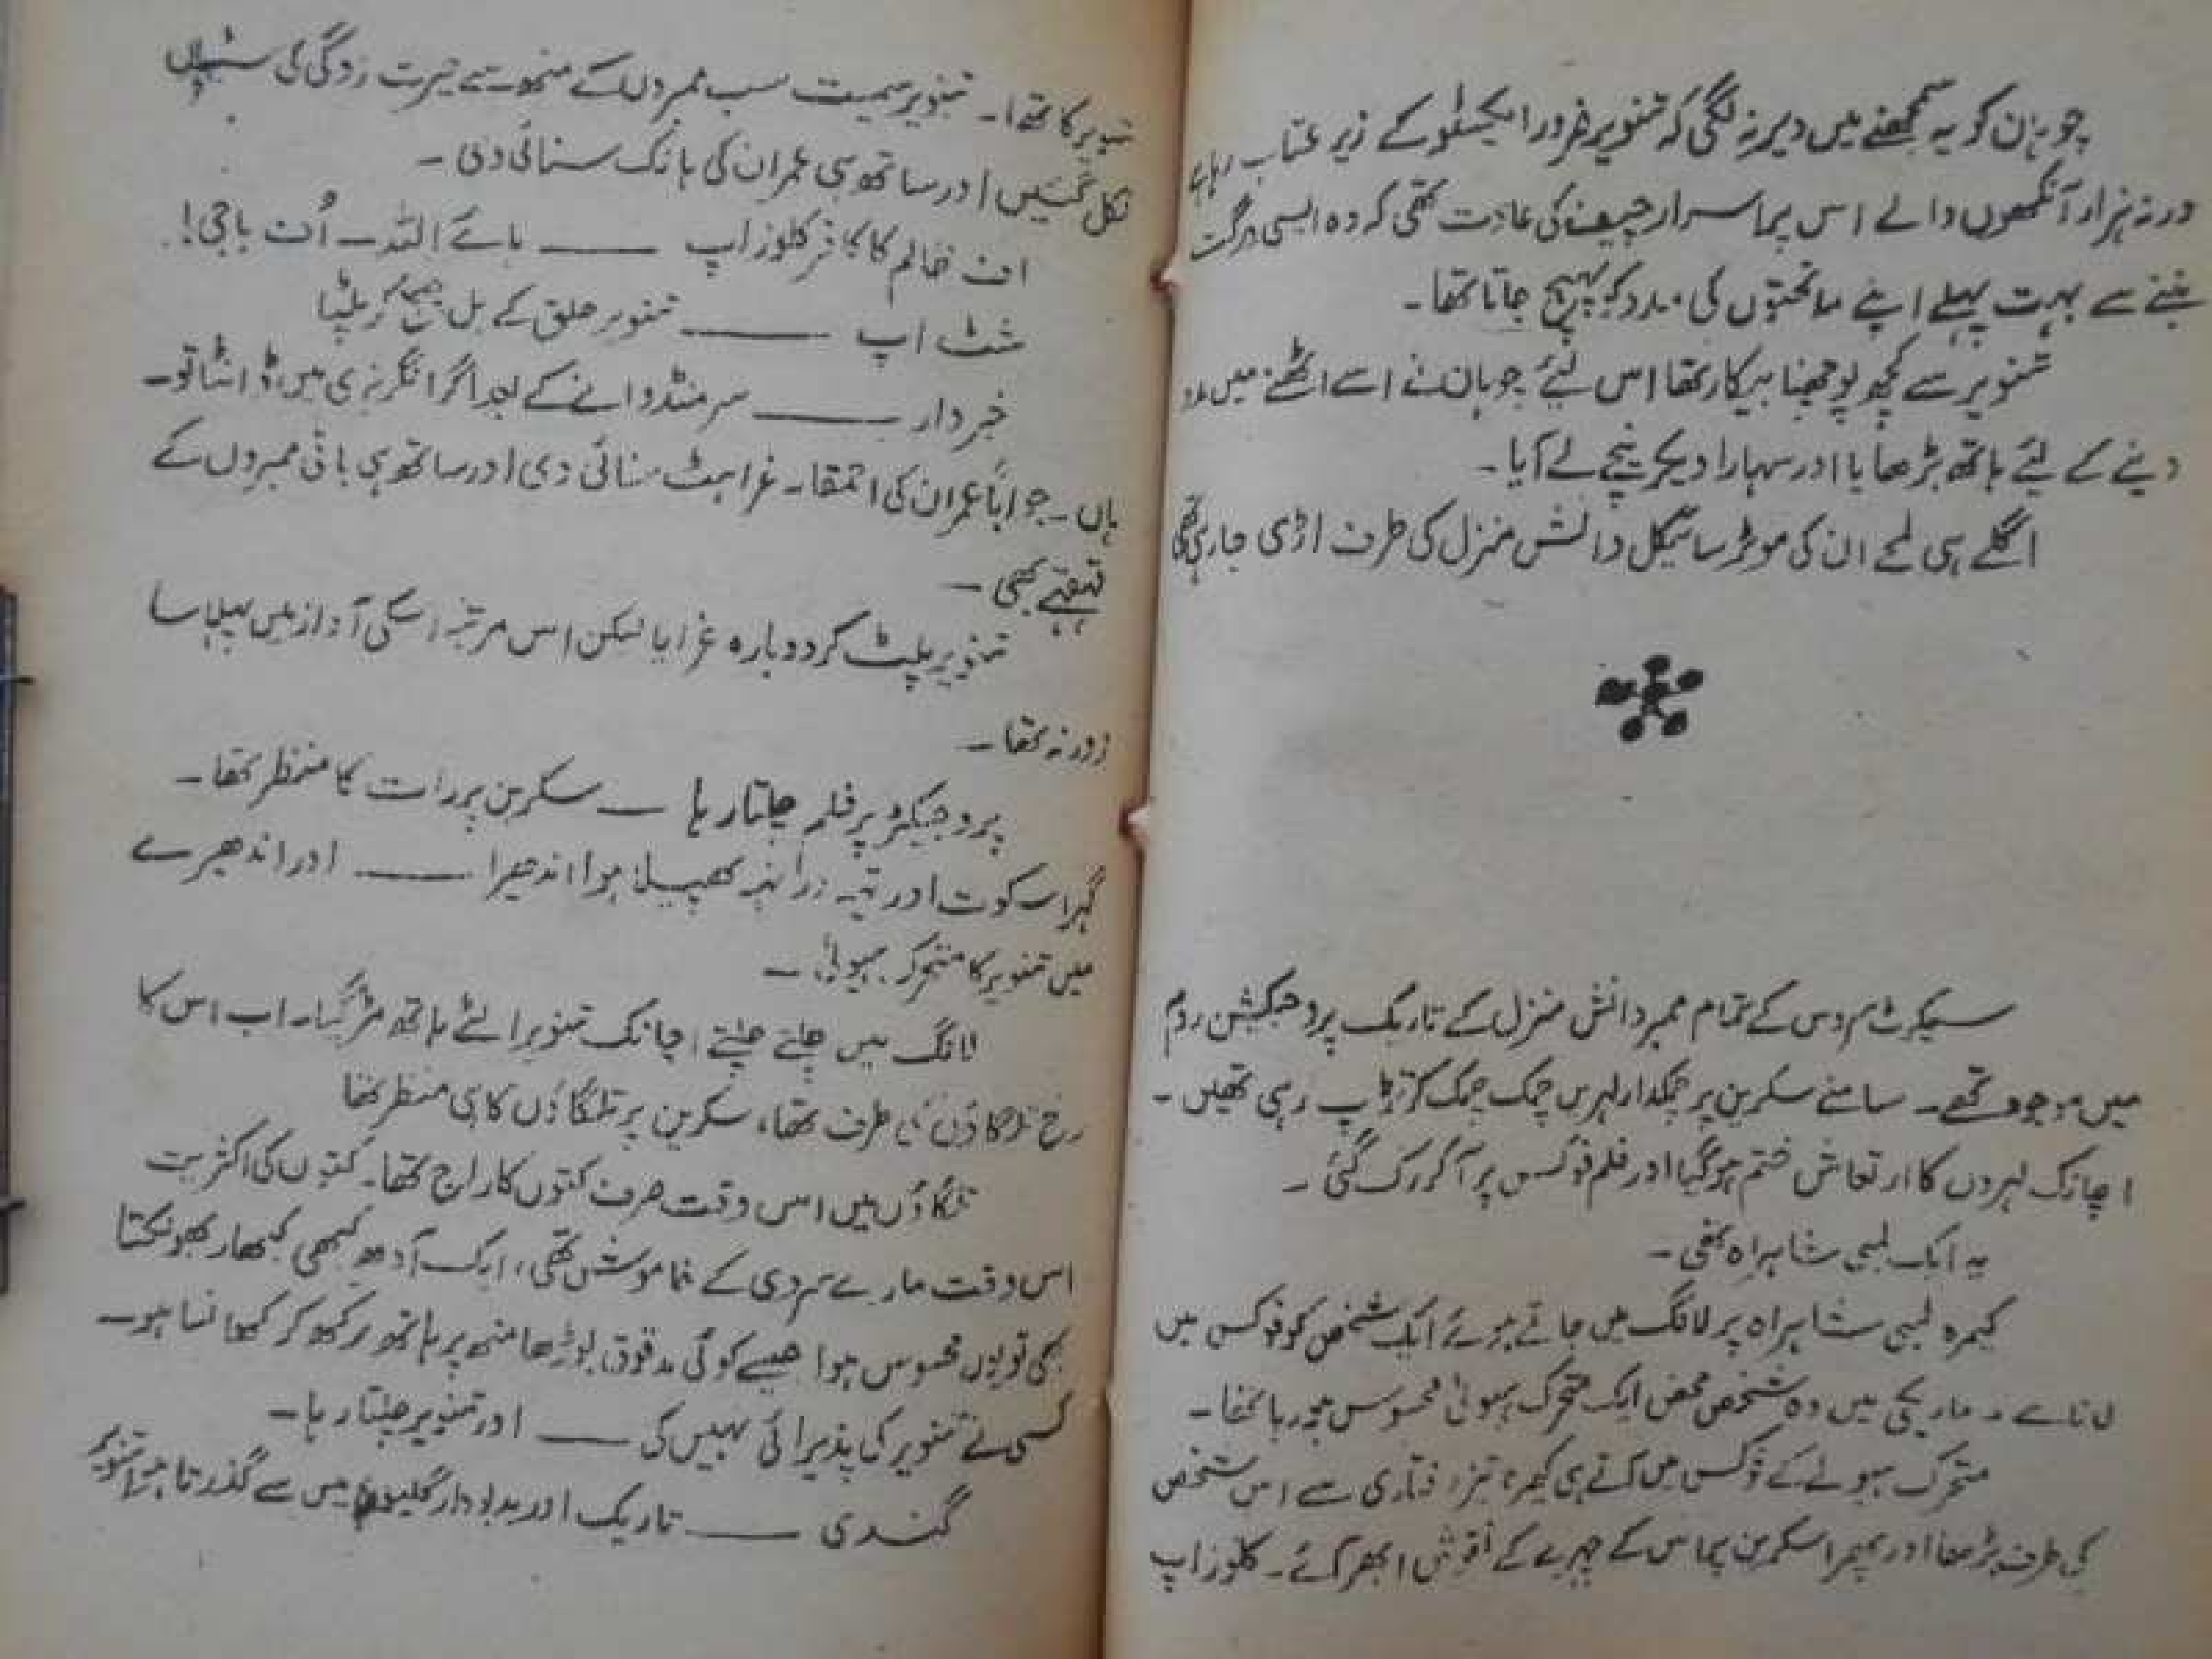 چوہان کو یہ سمجھنے میں دیر نہ لگی کہ تنویر ضرور ایکسٹو کے زیر عتاب رہا ہے
ورنہ ہزار آنکھوں والے اس پراسرار چیف کی عادت تھی کہ وہ ایسی درگت
بننے سے بہت پہلے اپنے ماتحتوں کی مدد کو پہنچ جاتا تھا۔
تنویر سے کچھ پوچھنا بیکار تھا اس لئے چوہان نے اسے اٹھنے میں مدد
دینے کے لئے ہاتھ بڑھایا اور سہارا دیکر نیچے لے آیا۔
اگلے ہی لمحے ان کی موٹر سائیکل دانش منزل کی طرف اڑی جا رہی تھی
سیکرٹ سروس کے تمام ممبر دانش منزل کے تاریک پروجیکشن روم
میں موجود تھے۔ سامنے سکرین پر چمکدار لہریں چمک چمک کر کانپ رہی تھیں۔
اچانک لہروں کا ارتعاش ختم ہوگیا اور فلم فوکس پر آ کر رک گئی۔
یہ ایک لمبی شاہراہ تھی۔
کیمرہ لمبی شاہراہ پر لانگ میں جاتے ہوئے ایک شخص کو فوکس میں
تاریکی میں وہ شخص محض ایک متحرک ہیولیٰ محسوس ہو رہا تھا۔
متحرک ہیولے کے فوکس میں آتے ہی کیمرہ تیز رفتاری سے اس شخص
کی طرف بڑھا اور پھر سکرین پر اس کے چہرے کے نقوش ابھر آئے۔ کلوز اپ
تنویر کا تھا۔ تنویر سمیت سب ممبروں کے منھ سے حیرت زدگی کی
نکل گئیں اور ساتھ ہی عمران کی ہانک سنائی دی۔
اف ظالم کا کافر کلوز اپ ـــــ ہائے اللہ ـ اُف باجی!
شٹ اپ ـــــ تنویر حلق کے بل چیخ کر پلٹا
خبردار ـــــ سر منڈوانے کے بعد اگر انگریزی میں ڈانٹا تو۔
ہاں۔ جواباً عمران کی احمقانہ غراہٹ سنائی دی اور ساتھ ہی باقی ممبروں کے
قہقہے بھی۔
تنویر پلٹ کر دوبارہ غرایا لیکن اس مرتبہ اسکی آواز میں پہلا سا
زور نہ تھا۔
پروجیکٹر پر فلم چلتا رہا ـ سکرین پر رات کا منظر تھا۔
گہرا سکوت اور تہہ در تہہ پھیلا ہوا اندھیرا ـــــ اور اندھیرے
میں تنویر کا متحرک ہیولیٰ۔
لانگ میں چلتے چلتے اچانک تنویر الٹے ہاتھ مڑ گیا۔ اب اس کا
رخ تلکاؤں کی طرف تھا، سکرین پر تلکاؤں کا ہی منظر تھا
تلکاؤں میں اس وقت صرف کتوں کا راج تھا۔ کتوں کی اکثریت
اس وقت مارے سردی کے خاموش تھی، ایک آدھ کبھی کبھار بھونکتا
بھی تو یوں محسوس ہوا جیسے کوئی مدقوق بوڑھا منھ پر ہاتھ رکھ کر کھانسا ہو۔
کسی نے تنویر کی پذیرائی نہیں کی ـــــ اور تنویر چلتا رہا۔
گندی ـــــ تاریک اور بدبودار گلیوں میں سے گذرتا ہوا تنویر